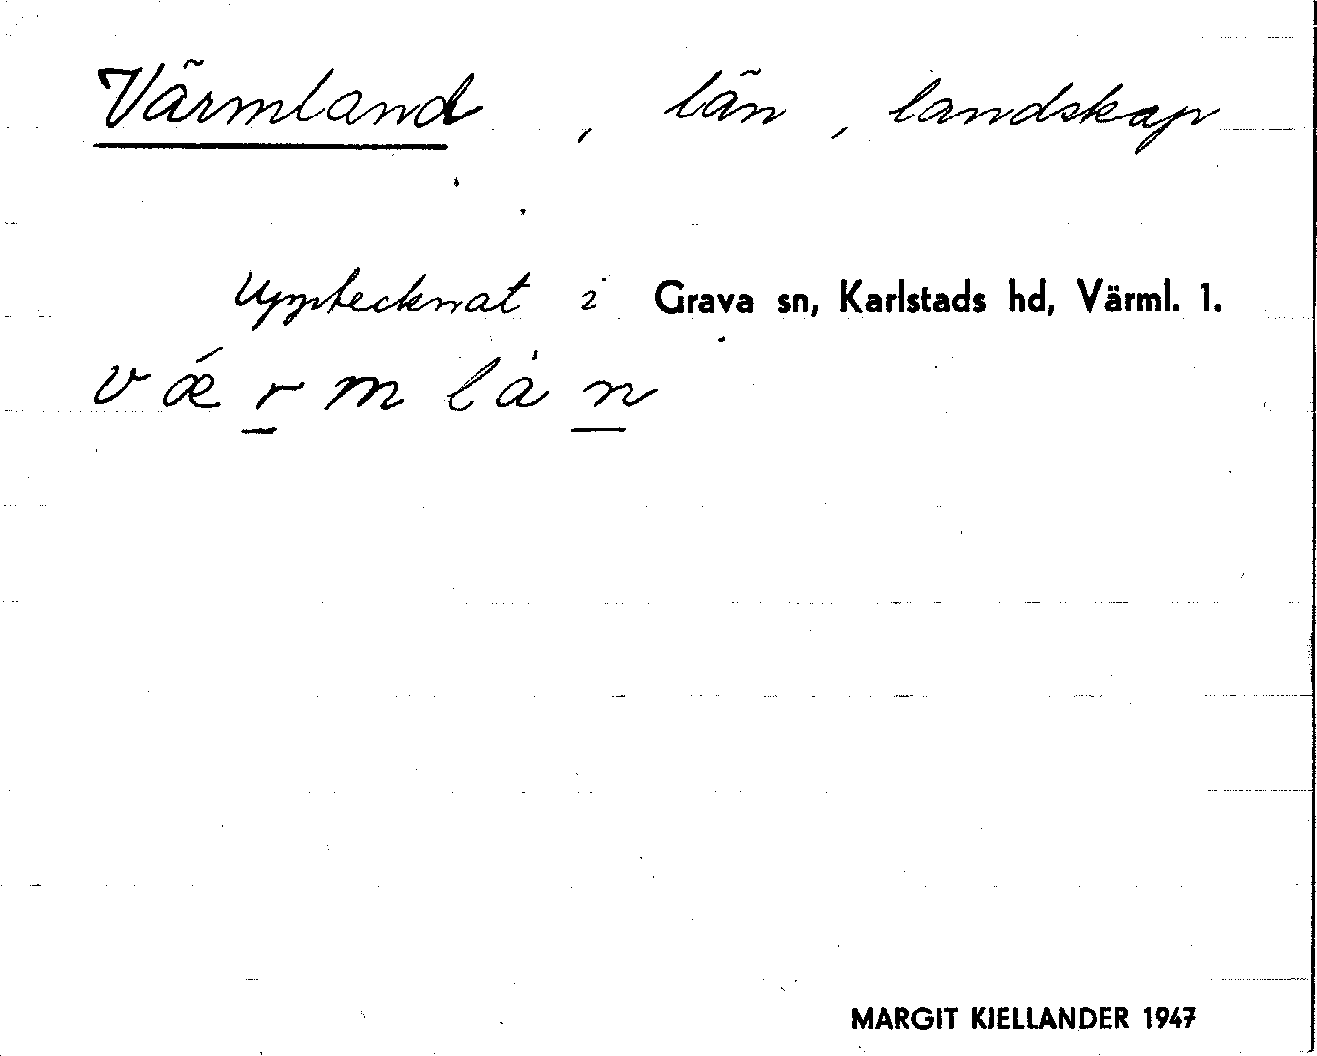 Värmland, län, landskap
Upptecknat i Grava sn, Karlstads hd, Värml. 1.
vǽr̲mlàn̲
MARGIT KJELLANDER 1947